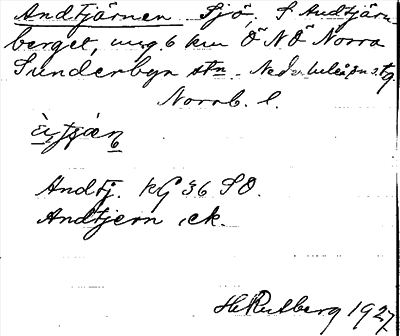 Andtjärnen Sjö. S Andtjärn
berget, ung. 6 km ÖNÖ Norra
Sunderbyn stn. Nederluleå sn o. tg.
Norrb. l.
Andtj. kG 36 SO.
Andtjern ek.
H. Rutberg 1927